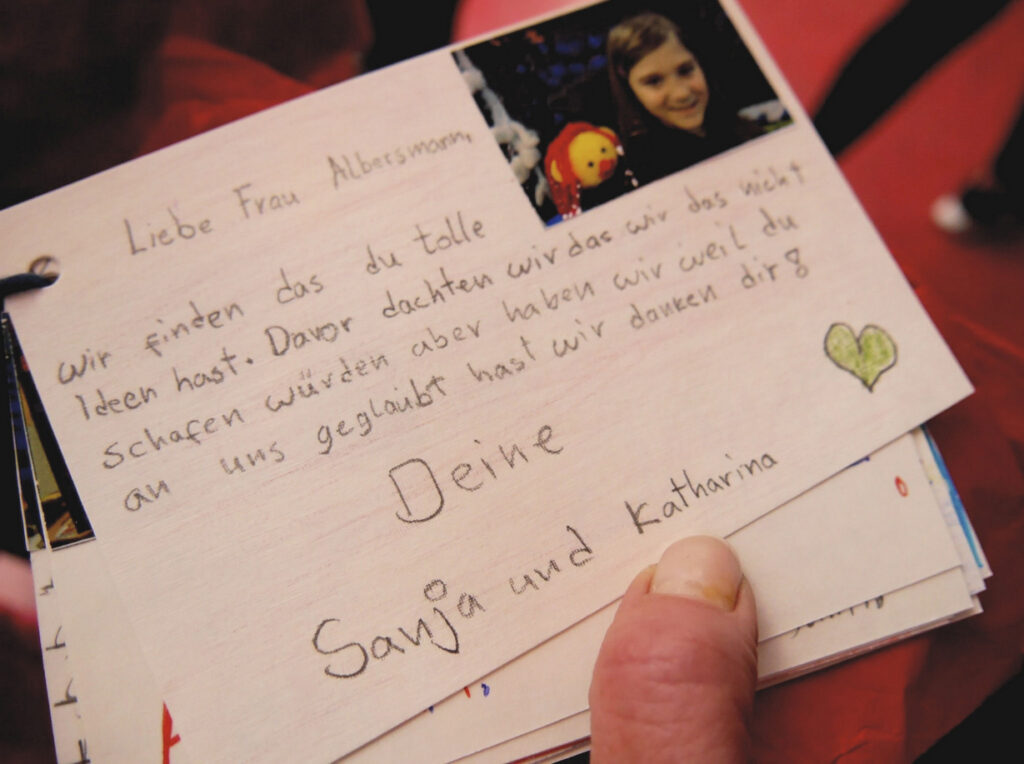 Liebe Frau Albersmann,
wir finden das du tolle
Ideen hast. Davor dachten wir das wir das nicht
schafen würden aber haben wir weil du
an uns geglaubt hast wir danken dir
Deine
Sanja und Katharina